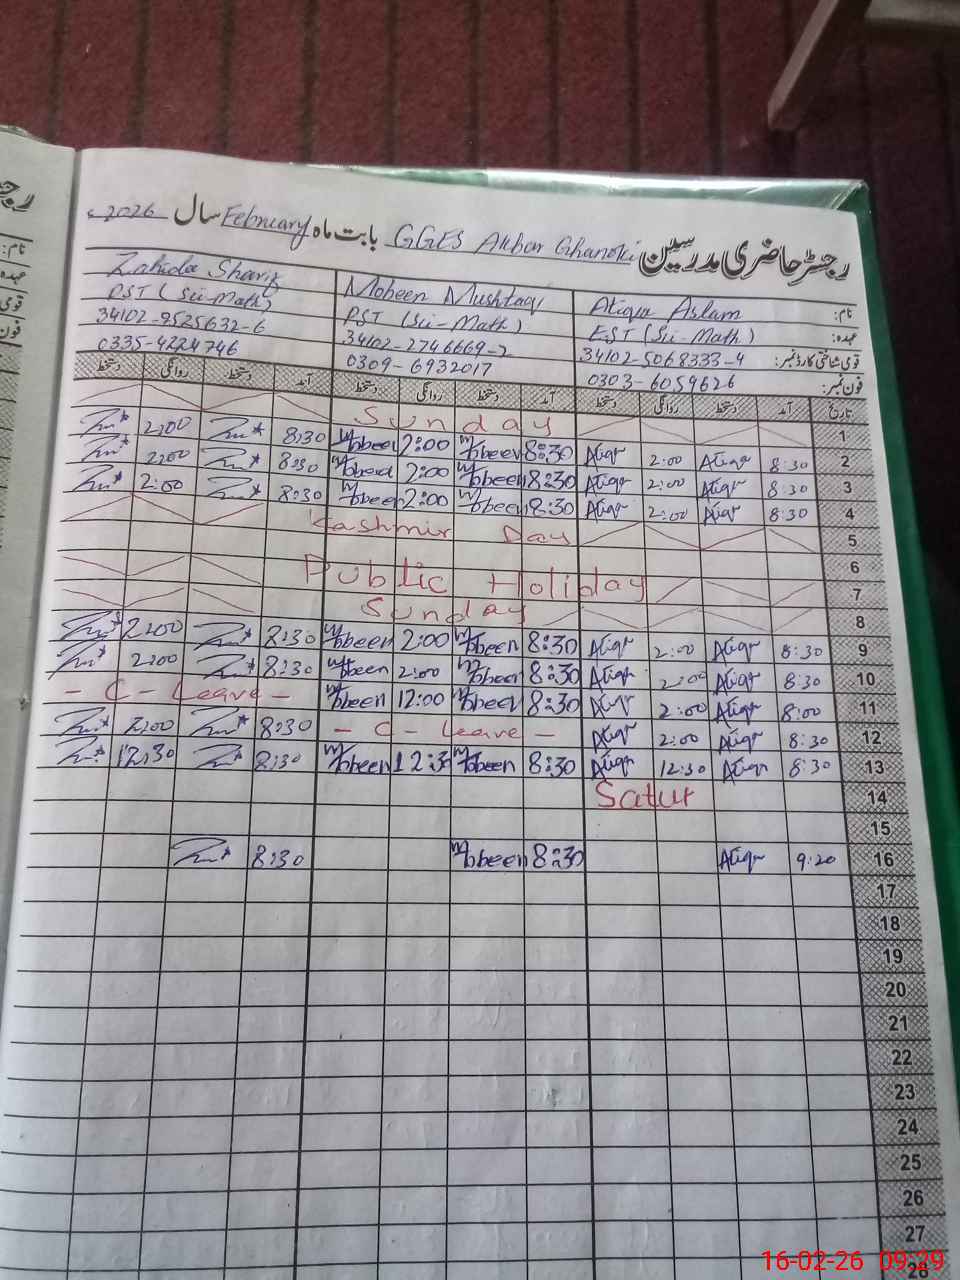 رجسٹر حاضری مدرسین GGES Akbar Ghanoki بابت ماہ February سال 2026ء
نام: Atiqa Aslam Mobeen Mushtaq Zahida Sharif
عہدہ: EST (Sci-Math) PST (Sci-Math) PST (Sci-Math)
قومی شناختی کارڈ نمبر: 34102-5068333-4 34102-2746669-2 34102-9525632-6
فون نمبر: 0303-6059626 0309-6932017 0335-4224746
تاریخ آمد دستخط روانگی دستخط آمد دستخط روانگی دستخط آمد دستخط روانگی دستخط
1 Sunday
2 8:30 Atiqa 2:00 Atiqa 8:30 Mobeen 2:00 Mobeen 8:30 2:00
3 8:30 Atiqa 2:00 Atiqa 8:30 Mobeen 2:00 Mobeen 8:30 2:00
4 8:30 Atiqa 2:00 Atiqa 8:30 Mobeen 2:00 Mobeen 8:30 2:00
5 Kashmir Day
6
7 Public Holiday
8 Sunday
9 8:30 Atiqa 2:00 Atiqa 8:30 Mobeen 2:00 Mobeen 8:30 2:00
10 8:30 Atiqa 2:00 Atiqa 8:30 Mobeen 2:00 Mobeen 8:30 2:00
11 8:00 Atiqa 2:00 Atiqa 8:30 Mobeen 12:00 Mobeen - C - Leave -
12 8:30 Atiqa 2:00 Atiqa - C - Leave - 8:30 2:00
13 8:30 Atiqa 12:30 Atiqa 8:30 Mobeen 12:3 Mobeen 8:30 12:30
14 Satur
15
16 9:20 Atiqa 8:30 Mobeen 8:30
17
18
19
20
21
22
23
24
25
26
27
28
16-02-26 09:29